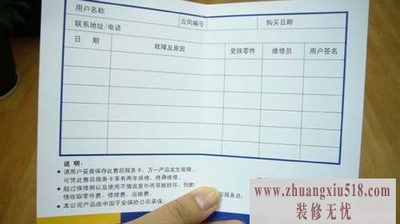 用户名称
合同编号
购买日期
联系地址/电话
日 期 故障及原因 更换零件 维修员 用户签名
说 明：
● 请用户妥善保存此售后服务卡，万一产品发生故障，
可凭此售后服务卡享有两年保修，终身维修。
● 超过保修期以及使用不慎或意外而导致损坏，则酌
情收取零件费、修理费、运输费。
● 本公司产品由中国平安保险公司承保。
服务点。
www.zhuangxiu518.com
装修无忧